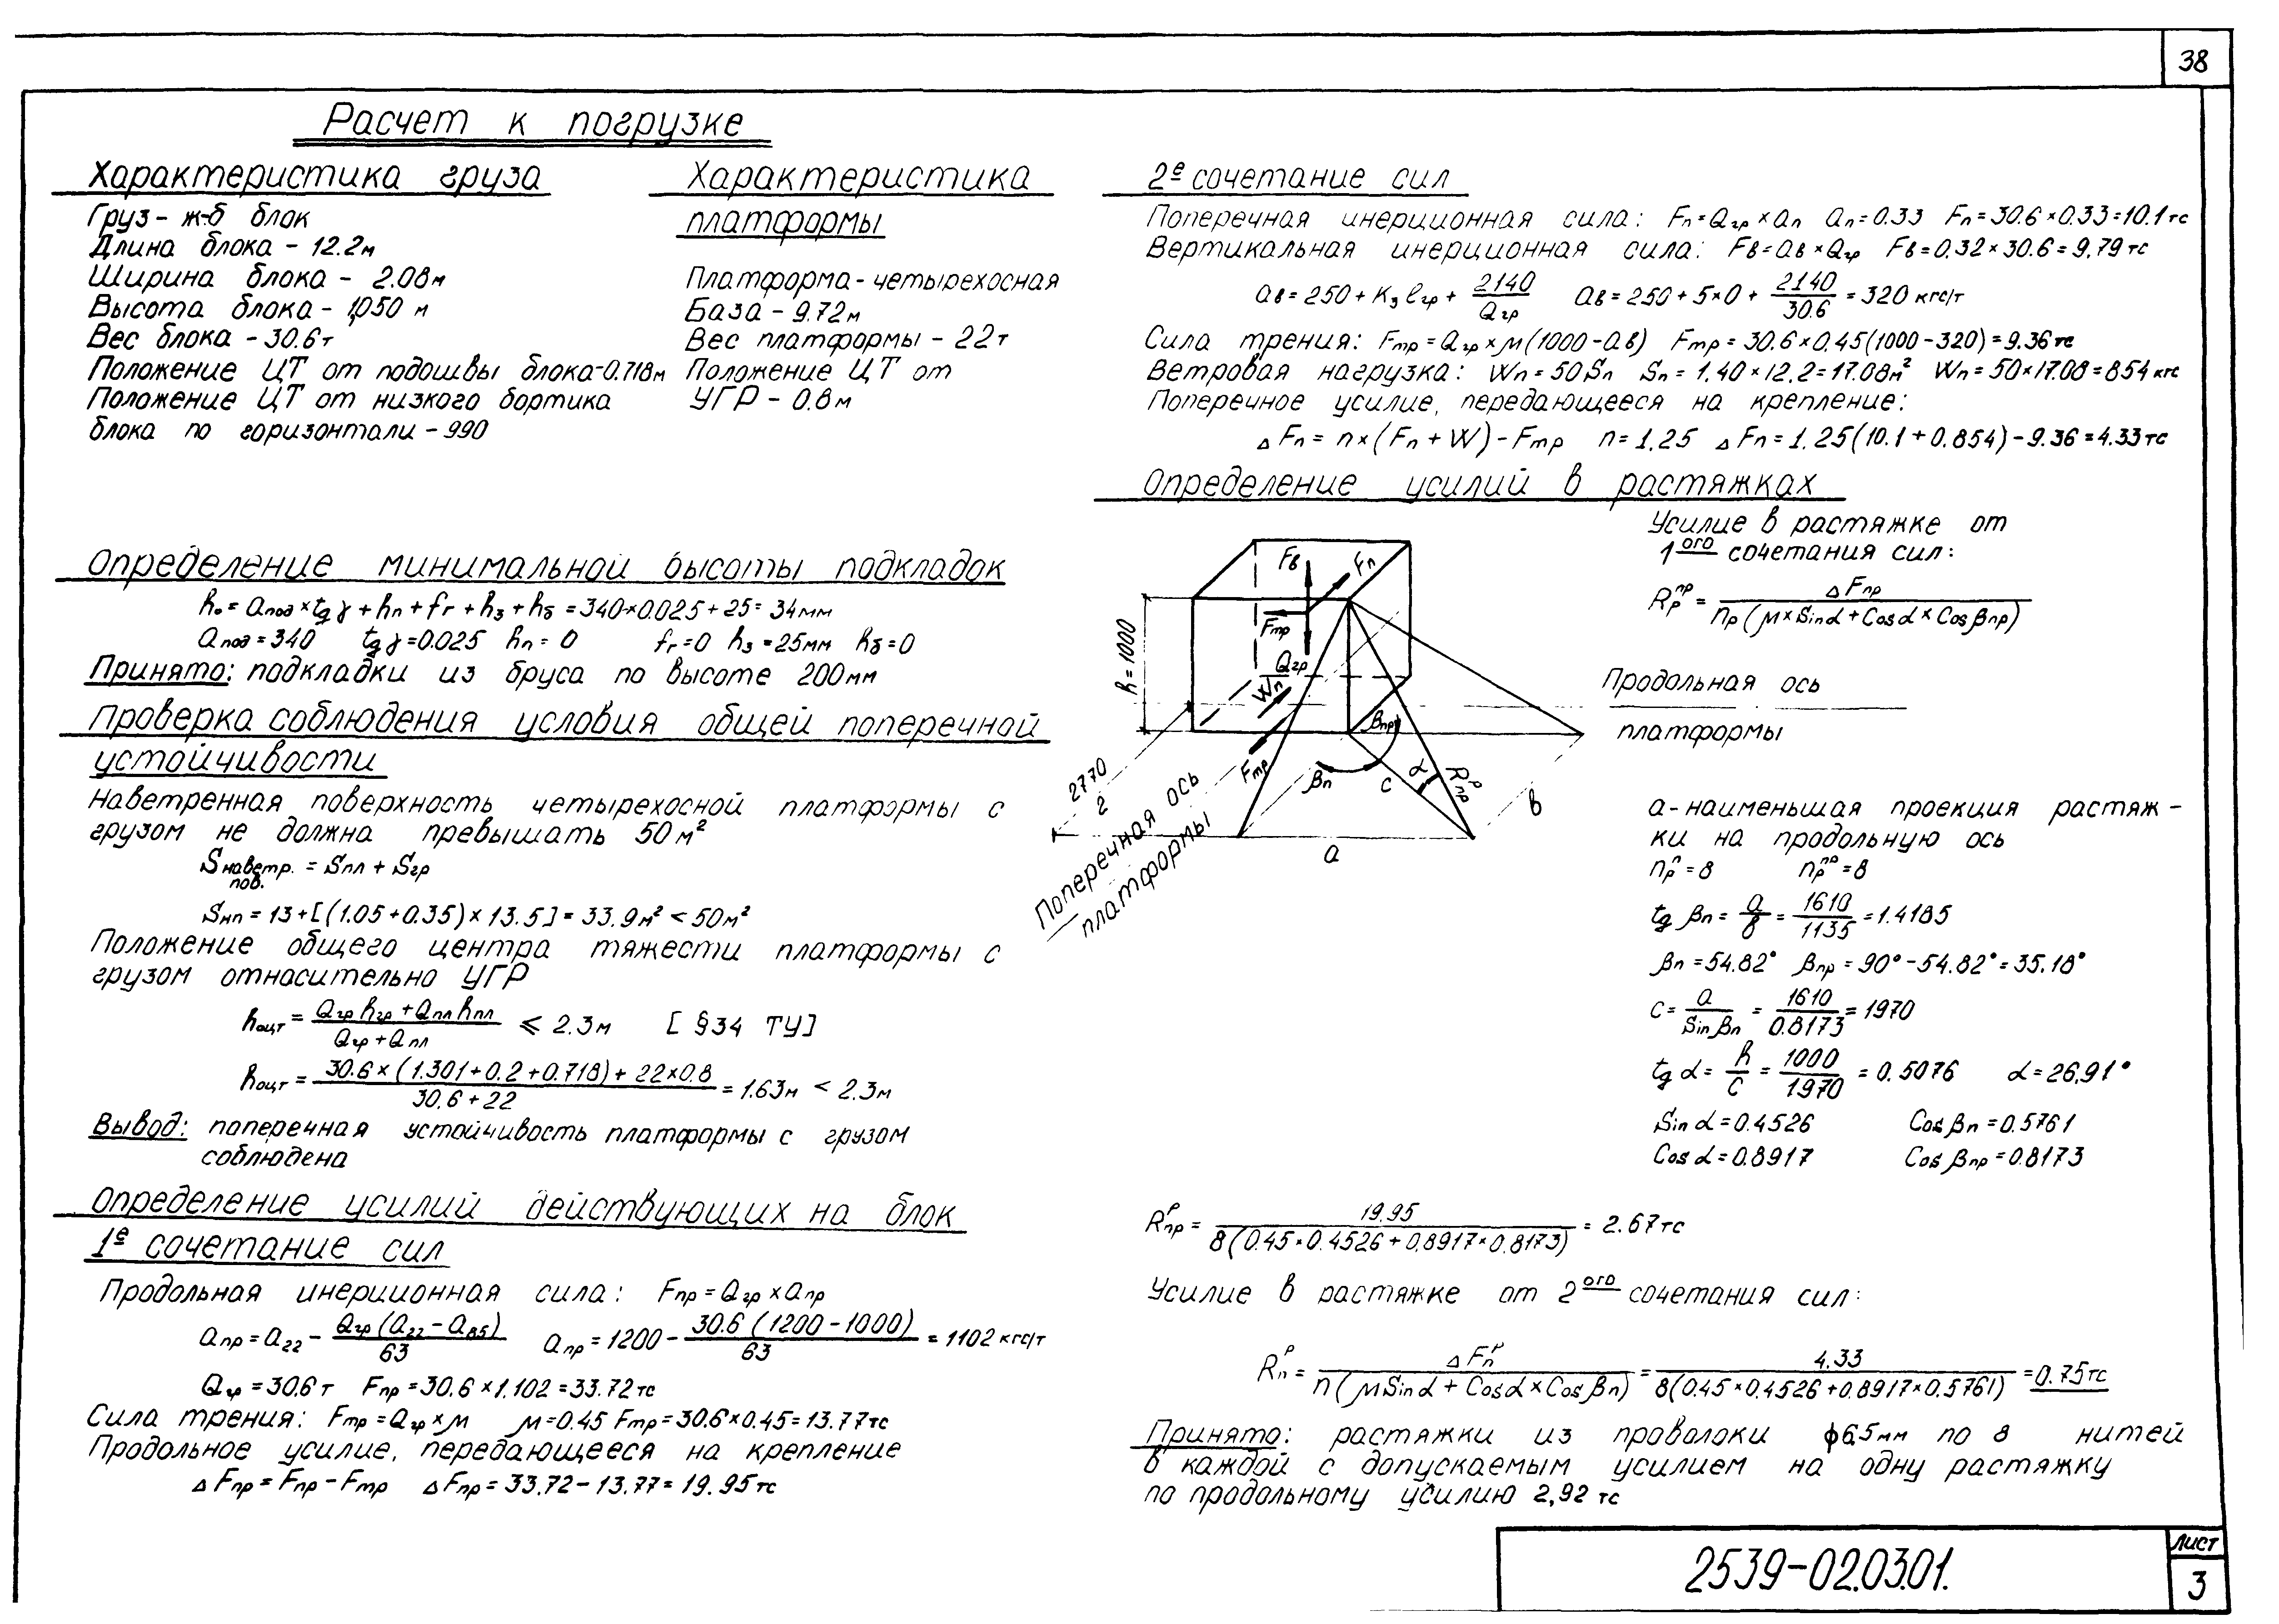 38
Расчет к погрузке
Характеристика груза
Груз - ж-б блок
Длина блока - 12.2м
Ширина блока - 2.08м
Высота блока - 1,050 м
Вес блока - 30.6т
Положение ЦТ от подошвы блока-0.718м
Положение ЦТ от низкого бортика
блока по горизонтали - 990
Характеристика
платформы
Платформа - четырехосная
База - 9.72м
Вес платформы - 22т
Положение ЦТ от
УГР - 0.8м
Определение минимальной высоты подкладок
h₀ = aпод × tg γ + hп + fг + hз + hб = 340×0.025 + 25 = 34мм
aпод = 340 tg γ = 0.025 hп = 0 fг = 0 hз = 25мм hб = 0
Принято: подкладки из бруса по высоте 200мм
Проверка соблюдения условия общей поперечной
устойчивости
Наветренная поверхность четырехосной платформы с
грузом не должна превышать 50м²
Sнаветр. пов. = Sпл + Sгр
Sнп = 13 + [(1.05 + 0.35) × 13.5] = 33.9м² < 50м²
Положение общего центра тяжести платформы с
грузом относительно УГР
hоцт = (Qгр hгр + Qпл hпл) / (Qгр + Qпл) ⩽ 2.3м [ §34 ТУ]
hоцт = (30.6 × (1.301 + 0.2 + 0.718) + 22×0.8) / (30.6 + 22) = 1.63м < 2.3м
Вывод: поперечная устойчивость платформы с грузом
соблюдена
Определение усилий действующих на блок
1е сочетание сил
Продольная инерционная сила: Fпр = Qгр × aпр
aпр = a₂₂ - Qгр (a₂₂ - a₈₅) / 63 aпр = 1200 - 30.6 (1200 - 1000) / 63 = 1102 кгс/т
Qгр = 30.6т Fпр = 30.6 × 1.102 = 33.72тс
Сила трения: Fтр = Qгр × м м = 0.45 Fтр = 30.6 × 0.45 = 13.77тс
Продольное усилие, передающееся на крепление
△ Fпр = Fпр - Fтр △ Fпр = 33.72 - 13.77 = 19.95тс
2е сочетание сил
Поперечная инерционная сила: Fп = Qгр × aп aп = 0.33 Fп = 30.6 × 0.33 = 10.1тс
Вертикальная инерционная сила: Fв = aв × Qгр Fв = 0.32 × 30.6 = 9.79тс
aв = 250 + Kз ℓгр + 2140 / Qгр aв = 250 + 5×0 + 2140 / 30.6 = 320 кгс/т
Сила трения: Fтр = Qгр × м (1000 - aв) Fтр = 30.6 × 0.45 (1000 - 320) = 9.36тс
Ветровая нагрузка: Wп = 50 Sп Sп = 1.40 × 12.2 = 17.08м² Wп = 50 × 17.08 = 854 кгс
Поперечное усилие, передающееся на крепление:
△ Fп = n × (Fп + W) - Fтр n = 1.25 △ Fп = 1.25 (10.1 + 0.854) - 9.36 = 4.33тс
Определение усилий в растяжках
Fв
Fп
Fтр
Qгр
Wп
h = 1000
βпр
Fтр
βп
c
α
Rпр р
2770 / 2
a
в
Поперечная ось
платформы
Усилие в растяжке от
1ого сочетания сил:
Rр пр = △ Fпр / nр (м × Sin α + Cos α × Cos βпр)
Продольная ось
платформы
a - наименьшая проекция растяж-
ки на продольную ось
nр п = 8 nр пр = 8
tg βп = a / в = 1610 / 1135 = 1.4185
βп = 54.82° βпр = 90° - 54.82° = 35.18°
c = a / Sin βп = 1610 / 0.8173 = 1970
tg α = h / c = 1000 / 1970 = 0.5076 α = 26.91°
Sin α = 0.4526 Cos βп = 0.5761
Cos α = 0.8917 Cos βпр = 0.8173
Rпр р = 19.95 / 8 (0.45 × 0.4526 + 0.8917 × 0.8173) = 2.67тс
Усилие в растяжке от 2ого сочетания сил:
Rп р = △ Fп р / n (м Sin α + Cos α × Cos βп) = 4.33 / 8 (0.45 × 0.4526 + 0.8917 × 0.5761) = 0.75тс
Принято: растяжки из проволоки ф6,5мм по 8 нитей
в каждой с допускаемым усилием на одну растяжку
по продольному усилию 2,92 тс
2539-02.03.01.
Лист
3